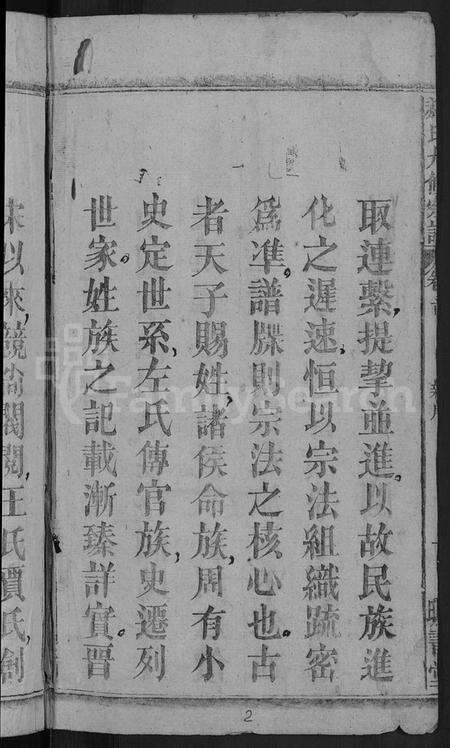 取連繫，提挈並進。以故民族進
化之遲速，恒以宗法組織疏密
爲準。譜牒則宗法之核心也。古
者天子賜姓，諸侯命族，周有小
史定世系，左氏傳官族，史遷列
世家。姓族之記載漸臻詳實。晋
宋以來，競尚閥閱，王氏賈氏，創
2
FamilySearch